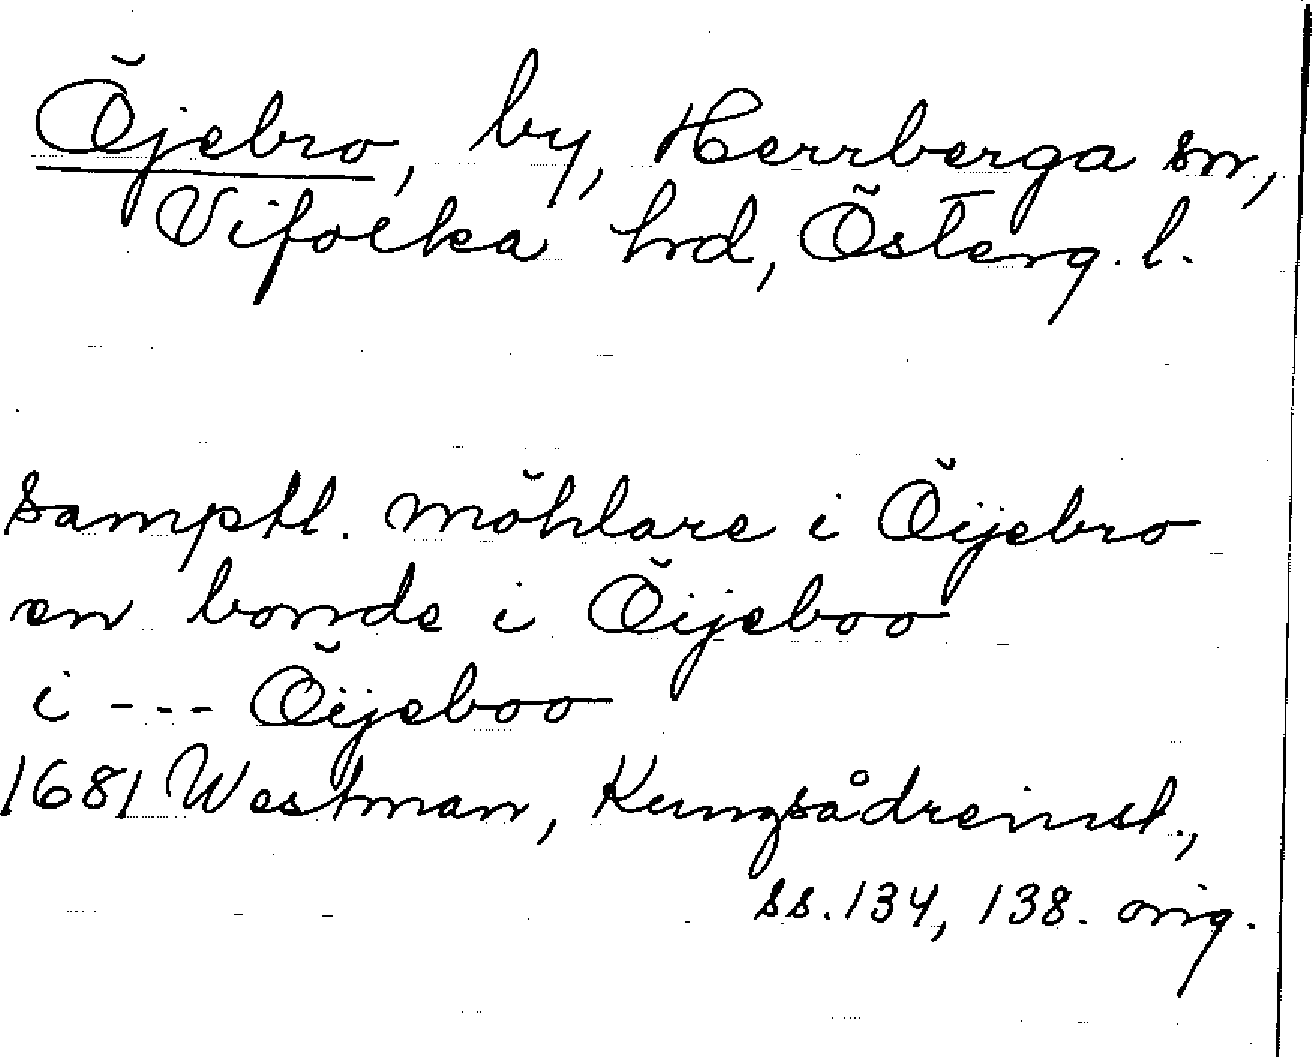 Öjebro, by, Herrberga sn,
Vifolka hd, Österg. l.
samptl. möhlare i Öijebro
en bonde i Öijeboo
i --- Öijeboo
1681 Westman, Kungsådreinst.,
ss. 134, 138. orig.